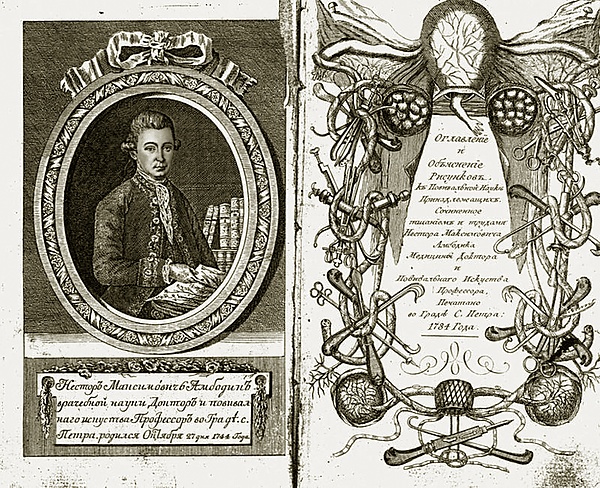 Несторъ Максимовичъ Амбодикъ
врачебной науки Докторъ и повивал
наго искуства Профессоръ во Градѣ. С.
Петра, родился Октября 27 дня 1744 Года.
Оглавленіе
и
Объясненіе
Рисунковъ.
къ Повивальной Науки
Принадлежащихъ.
Сочиненное
тщаніемъ и трудами
Нестора Максимовича
Амбодика
Медицины Доктора
и
Повивальнаго Искуства
Профессора,
Печатано
во Градѣ С. Петра:
1784 Года.